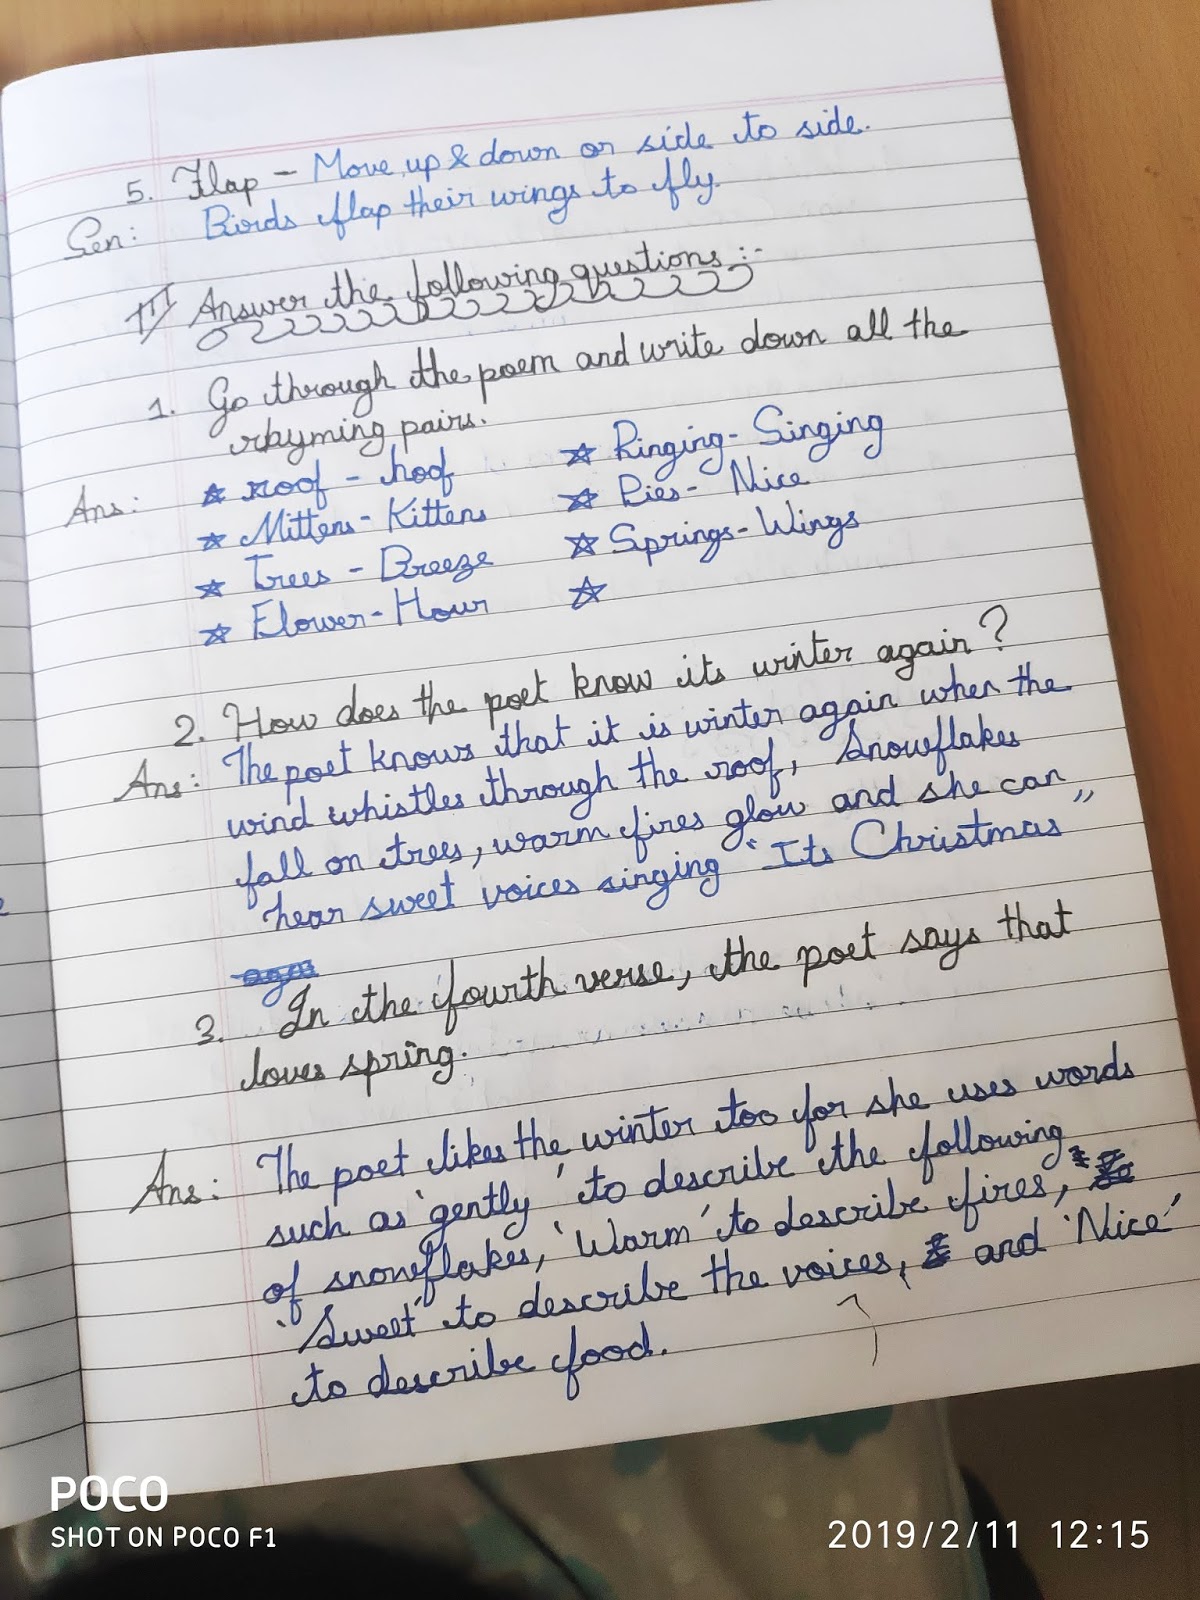 5. Flap - Move up & down or side to side.
Sen: Birds flap their wings to fly.
III Answer the following questions :-
1. Go through the poem and write down all the
rhyming pairs.
Ans: ☆ roof - hoof ☆ Ringing - Singing
☆ Mittens - Kittens ☆ Pies - Nice
☆ Trees - Breeze ☆ Springs - Wings
☆ Flower - Hour ☆
2. How does the poet know its winter again?
Ans: The poet knows that it is winter again when the
wind whistles through the roof, Snowflakes
fall on trees, warm fires glow and she can
hear sweet voices singing "Its Christmas"
3. In the fourth verse, the poet says that
loves spring.
Ans: The poet likes the winter too for she uses words
such as 'gently' to describe the following
of snowflakes, 'Warm' to describe fires,
'Sweet' to describe the voices, and 'Nice'
to describe food.
POCO
SHOT ON POCO F1
2019/2/11 12:15